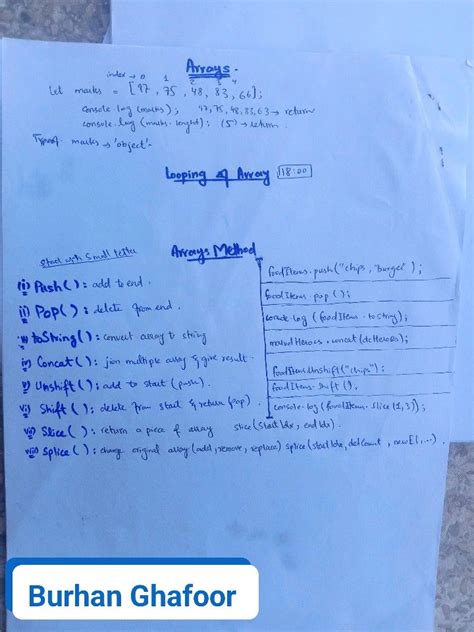 Arrays.
index → 0 1 2 3 4
let marks = [97, 75, 48, 83, 66];
console.log (marks); 97,75,48,83,63 → return
console.log (marks.lenght); (5) → return.
Typeof marks → 'object'.
Looping of Array 18:00
start with small letter
Arrays Method
(i) Push( ): add to end.
ii) Pop( ): delete from end.
iii) toString( ): convert array to string
iv) Concat( ): join multiple array & give result.
v) Unshift( ): add to start (push).
vi) Shift( ): delete from start & return (pop).
vii) Slice( ): return a piece of array slice(startIdx, endIdx).
viii) Splice( ): change original array (add, remove, replace) splice(startIdx, delCount, newEl, ...).
foodItems.push("chips, "burger");
foodItems.pop();
console.log (foodItem.toString);
marvelHeroes.concat(dcHeroes);
foodItems.Unshift("chips");
foodItems.shift();
console.log(foodItem.slice(1,3));
Burhan Ghafoor